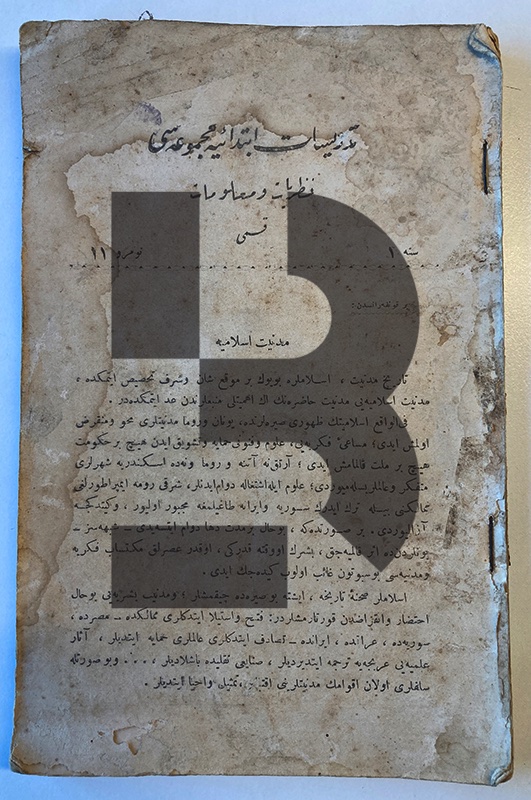 تدریسات ابتدائیه مجموعه‌سی
نظریات و معلومات
قسمی
سنه ۱ نومرو ۱۱
مدنیت اسلامیه
تاریخ مدنیت ، اسلاملره بویوك بر موقع شان وشرف تخصیص ایتمكده ،
مدنیت اسلامیه‌یی مدنیت حاضره‌نك اك اهمیتلی منبعلرندن عد ایتمكده‌در .
فی‌الواقع اسلامیتك ظهوری صیره‌لرنده، یونان وروما مدنیتلری محو ومنقرض
اولمش ایدی ؛ مساعئ فكریه‌یی، علوم وفنونی حمایه وتشویق ایدن هیچ بر حكومت
هیچ بر ملت قالمامش ایدی ؛ آرتق نه آتنه و روما ونه‌ده اسكندریه شهرلری
متفكر وعالملر بسله‌میوردی ؛ علوم ایله اشتغاله دوام ایدنلر، شرقی رومه ایمپراطورلغی
ممالكنی ترك ایدرك سوریه وایرانه طاغیلمغه مجبور اولیور ، وكیتدكجه
آزالیوردی . بر صورتده‌كه ، بوحال بر مدت دها دوام ایتسه‌یدی – شبهه‌سز –
بونلردن‌ده اثر قالمیه‌جق ، بشرك اووقته قدركی ، اوقدر عصرلق مكتسبات فكریه
ومدنیه‌سی بوسبوتون غائب اولوب كیده‌جك ایدی .
اسلاملر صحنهٔ تاریخه ، ایشته بو صیره‌ده چیقمشلر ؛ ومدنیت بشریه‌یی بوحال
احتضار وانقراضدن قورتارمشلردر: فتح واستیلا ایتدكلری ممالكده – مصرده ،
سوریه‌ده ، عراقده ، ایرانده – تصادف ایتدكلری عالملری حمایه ایتدیلر ، آثار
علمیه‌یی عربجه‌یه ترجمه ایتدیردیلر ، صنایعی تقلیده باشلادیلر ، . . . وبو صورتله
سلفلری اولان اقوامك مدنیتلرینی تمثیل واحیا ایتدیلر .